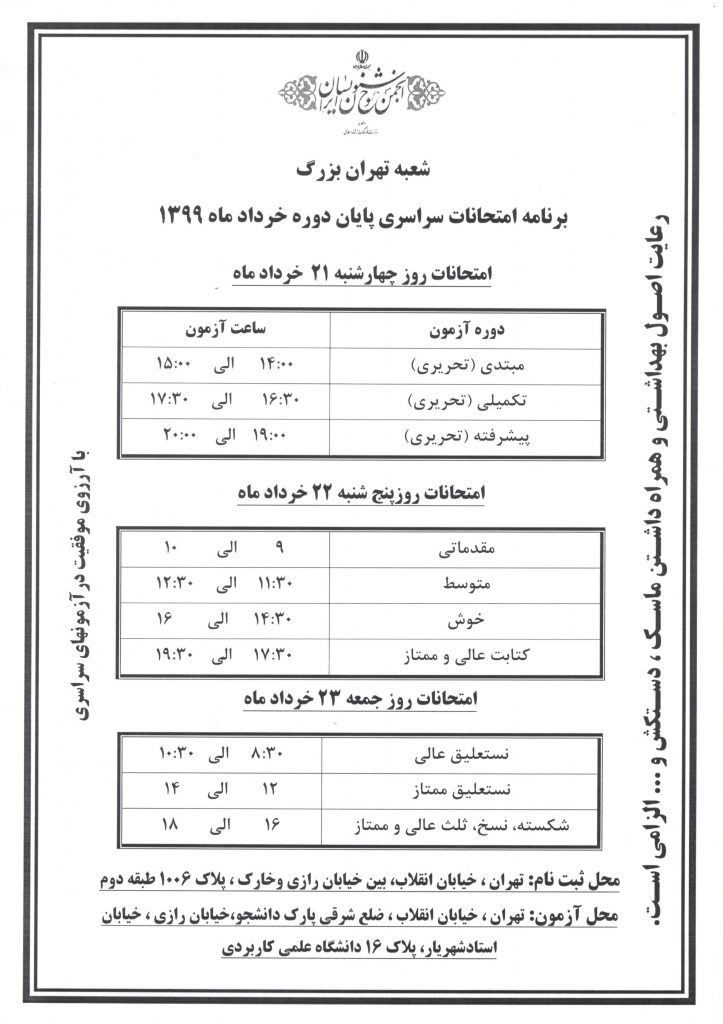 انجمن خوشنویسان ایران
شعبه تهران بزرگ
برنامه امتحانات سراسری پایان دوره خرداد ماه ۱۳۹۹
امتحانات روز چهارشنبه ۲۱ خرداد ماه
دوره آزمون ساعت آزمون
مبتدی (تحریری) ۱۴:۰۰ الی ۱۵:۰۰
تکمیلی (تحریری) ۱۶:۳۰ الی ۱۷:۳۰
پیشرفته (تحریری) ۱۹:۰۰ الی ۲۰:۰۰
امتحانات روزپنج شنبه ۲۲ خرداد ماه
مقدماتی ۹ الی ۱۰
متوسط ۱۱:۳۰ الی ۱۲:۳۰
خوش ۱۴:۳۰ الی ۱۶
کتابت عالی و ممتاز ۱۷:۳۰ الی ۱۹:۳۰
امتحانات روز جمعه ۲۳ خرداد ماه
نستعلیق عالی ۸:۳۰ الی ۱۰:۳۰
نستعلیق ممتاز ۱۲ الی ۱۴
شکسته، نسخ، ثلث عالی و ممتاز ۱۶ الی ۱۸
محل ثبت نام: تهران ، خیابان انقلاب، بین خیابان رازی وخارک ، پلاک ۱۰۰۶ طبقه دوم
محل آزمون: تهران ، خیابان انقلاب ، ضلع شرقی پارک دانشجو،خیابان رازی ، خیابان
استادشهریار، پلاک ۱۶ دانشگاه علمی کاربردی
رعایت اصول بهداشتی و همراه داشتن ماسک ، دستکش و ... الزامی است.
با آرزوی موفقیت در آزمونهای سراسری